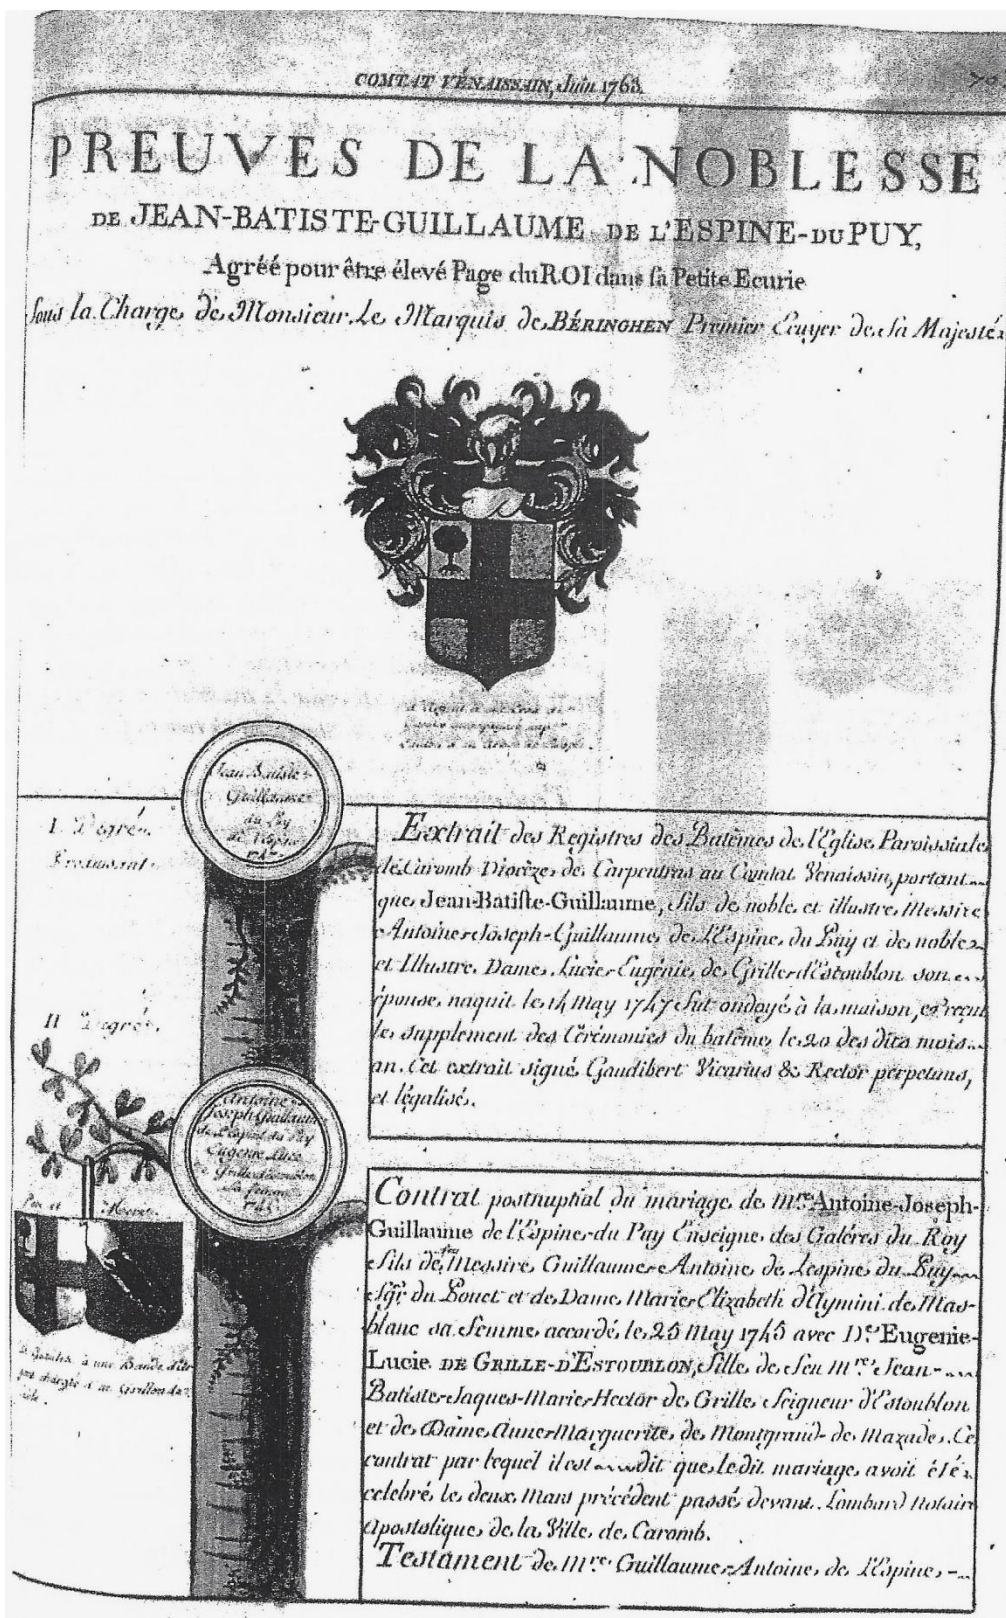 COMTAT VÉNAISSAIN, Juin 1763.
PREUVES DE LA NOBLESSE
DE JEAN-BATISTE-GUILLAUME DE L'ESPINE-DU PUY,
Agréé pour être élevé Page du ROI dans sa Petite Ecurie
sous la Charge de Monsieur Le Marquis de BÉRINGHEN Premier Ecuyer de Sa Majesté
Jean Batiste
Guillaume
du Puy
de l'Espine
I. Degré.
II Degré.
Extrait des Registres des Batêmes de l'Eglise Paroissiale
de Caromb Diorèze de Carpentras au Comtat Venaissin, portant
que Jean-Batiste-Guillaume, fils de noble et illustre Messire
Antoine-Joseph-Guillaume de l'Espine du Puy et de noble
et Illustre Dame Lucie-Eugénie de Grille-d'Estoublon son
épouse, naquit le 14 May 1747 fut ondoyé à la maison, et reçut
le supplement des Cérémonies du batême le 20 des dits mois
an. Cet extrait signé Gaudibert Vicarius & Rector perpetuus,
et légalisé.
Antoine
Joseph Guillaume
de l'Espine du Puy
Eugenie Luce
de Grille d'Estoublon
sa femme
Contrat postnuptial du mariage de Mre Antoine-Joseph-
Guillaume de l'Espine-du Puy Enseigne des Galéres du Roy
fils de Messire Guillaume-Antoine de Lespine du Puy
Sgr. du Pouet et de Dame Marie-Elizabeth d'Aymini de Mas-
blanc sa femme accordé le 25 May 1745 avec De. Eugenie-
Lucie DE GRILLE-D'ESTOUBLON, fille de feu Mre. Jean-
Batiste-Jaques-Marie-Hector de Grille Seigneur d'Estoublon
et de Dame Anne-Marguerite de Montgrand-de Mazade. Ce
contrat par lequel il est dit que le dit mariage avoit été
celebré le deux Mars précédent passé devant Lombard Notaire
Apostolique de la Ville de Caromb.
Testament de Mre. Guillaume-Antoine de l'Espine -